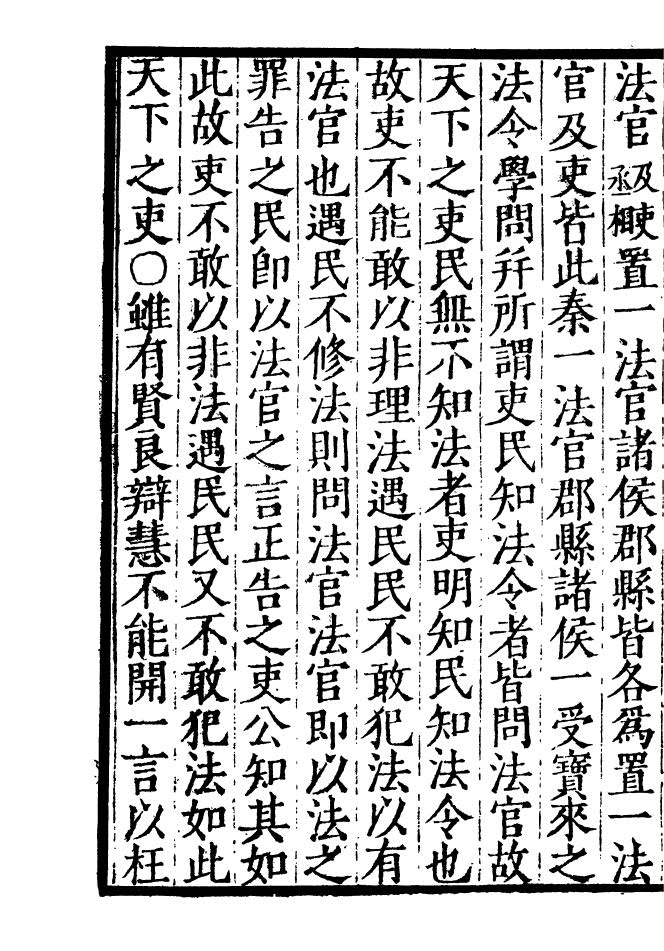 法官丞及相吏置一法官諸侯郡縣皆各爲置一法
官及吏皆此秦一法官郡縣諸侯一受寶來之
法令學問幷所謂吏民知法令者皆問法官故
天下之吏民無不知法者吏明知民知法令也
故吏不能敢以非理法遇民民不敢犯法以有
法官也遇民不修法則問法官法官即以法之
罪告之民卽以法官之言正告之吏公知其如
此故吏不敢以非法遇民民又不敢犯法如此
天下之吏〇雖有賢良辯慧不能開一言以枉